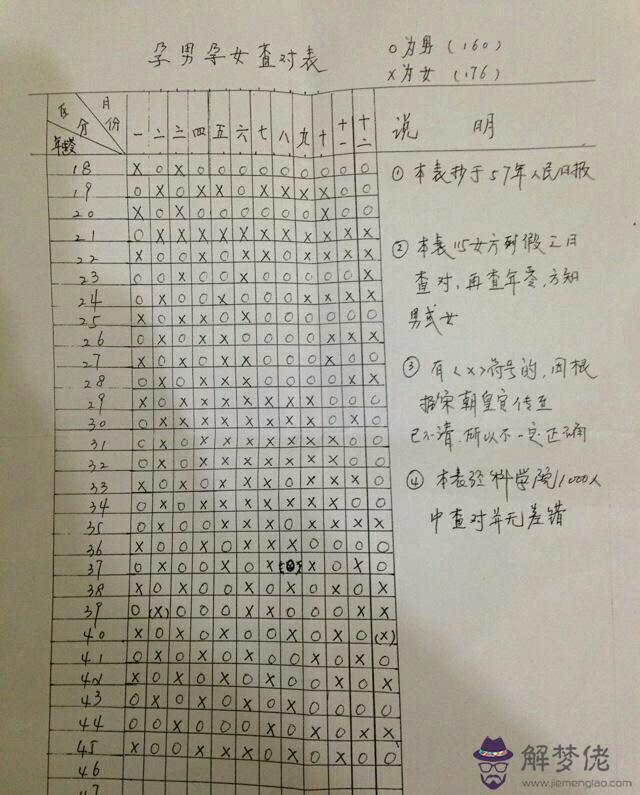 孕男孕女查对表
O为男（160）
X为女（176）
区分 月份 年龄 一 二 三 四 五 六 七 八 九 十 十一 十二 说 明
18 X O X O O O O O O O O O
19 O X O X X O X X X X O O
20 X O X O O O O O O X O O
21 O X X X X X X X X X X X
22 X O O X O X X O X X X X
23 O O X O O X O O O O O X
24 O X O O X O O O X X X X
25 X O X X O X O O O O O O
26 O X O X X O O O O X X X
27 X O X O X X O O O X O O
28 O X O X X X O O O O X X
29 X O X X X X X X X O O O
30 O X X X X X X X X O X O
31 O X O X X X X X X X O O
32 O X O X X X X X X X O O
33 X O X O X X X X X X O O
34 O X O X X X X X X X O O
35 O X O O X X X O X X X X
36 X O O X O X X X O O O O
37 O X O O X O X X O X O
38 X O X O O X O X O X O X
39 O (X) O O O X X O O O X X
40 X O X O X O O X O X O (X)
41 O X O X O X O O X O X O
42 X O X O X O X O O X O X
43 O X O X O X O X O O O O
44 O O X O O O X O X O X X
45 X O O X X X O X O X O O
46
47
① 本表抄于57年人民日报
② 本表以女方到假三日
查对，再查年零，方知
男或女
③ 有〈X〉符号的，因根
据宋朝皇宫传至
已不清，所以不一定正确
④ 本表经科学院1000人
中查对并无差错
解梦佬
www.jiemenglao.com